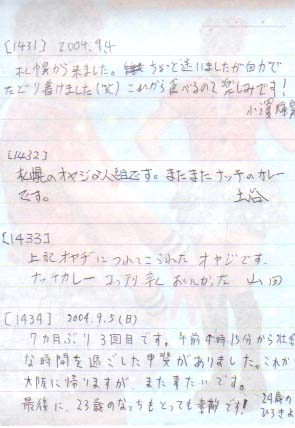 [1431] 2004.9.4
札幌から来ました。ちょっと迷いましたが自力で
たどり着けました(笑)これから食べるので楽しみです!
小濱
[1432]
札幌のオヤジ2人組です。またまたナッチのカレー
です。 土谷
[1433]
上記オヤヂにつれてこられたオヤジです。
ナッチカレー コッテリ辛く おいしかった 山田
[1434] 2004.9.5(日)
7カ月ぶり3回目です。午前4時15分から
な時間を過ごした甲斐がありました。これから
大阪に帰りますが、また来たいです。
最後に、23歳のなっちもとっても素敵です! 24歳の
ひろきよ